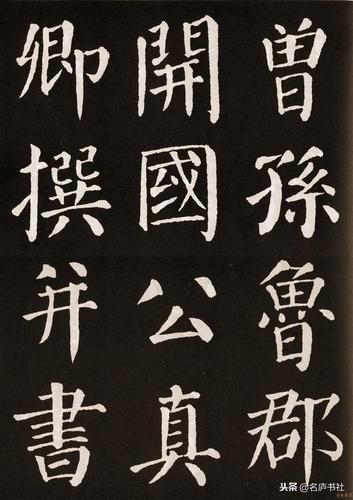 曾孫魯郡
開國公真
卿撰并書
头条@名庐书社